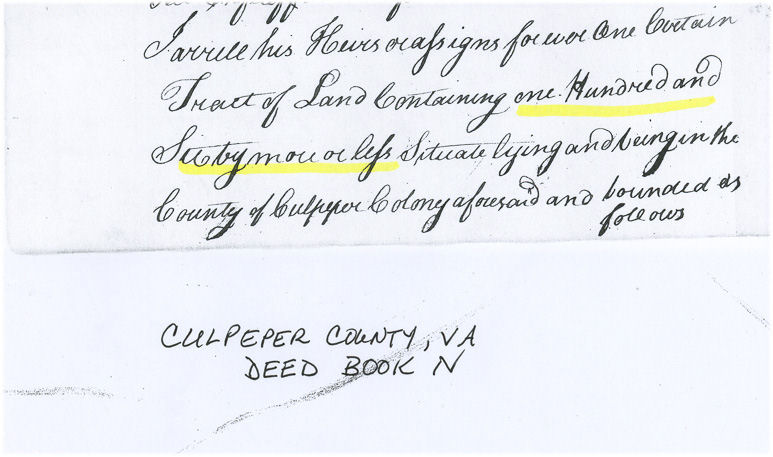 Jarrell his Heirs or assigns forever One Certain
Tract of Land Containing one Hundred and
Sixty more or less Situate lying and being in the
County of Culpeper Colony aforesaid and bounded as
follows
CULPEPER COUNTY, VA
DEED BOOK N